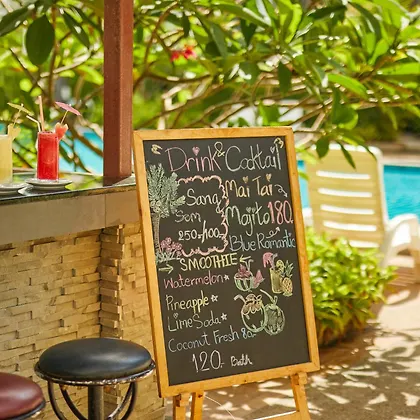 Drink & Cocktail
Sang
Som
250.-/100
Mai Tai
Mojito 180.-
Blue Romantic
SMOOTHIE
Watermelon
Pineapple
Lime Soda
Coconut Fresh 80.-
120.- Bath